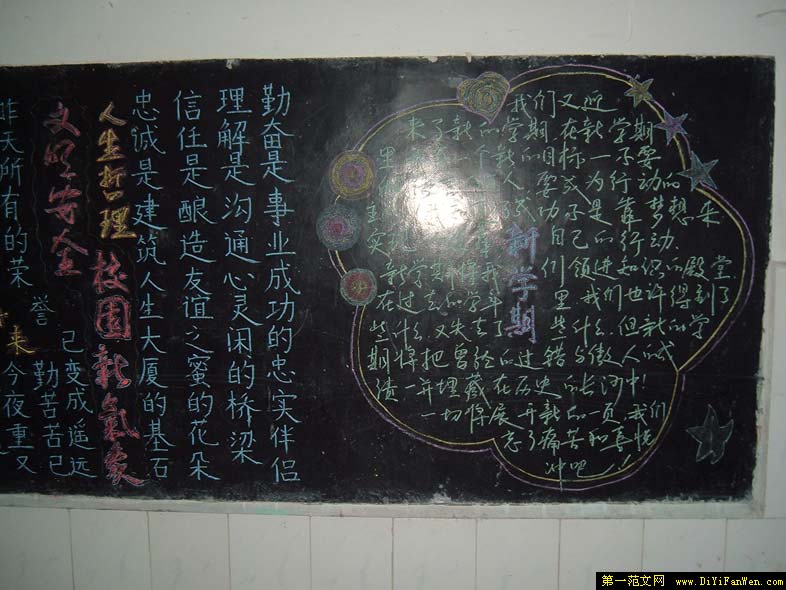 我们又迎
来了新的学期 在新学期
里 一个新的目标 一不要
人 要 为行动的
成功 不是靠梦想来
实现 自己的行动.
新学期 我们领进知识的殿堂.
在过去的学年里 我们也许得到了
些什么 又失去了些什么.但新的学
期将把曾经的过错与傲人的成
绩一并埋藏在历史的长河中!
一切将展开新的一页.我们
忘了痛苦和喜悦
冲吧!!
新学期
勤奋是事业成功的忠实伴侣
理解是沟通心灵闲的桥梁
信任是酿造友谊之蜜的花朵
忠诚是建筑人生大厦的基石
人生哲理
校园新气象
文明安全
昨天所有的荣
誉
已变成遥远
勤苦苦已
来今夜重又
第一范文网 www.DiYiFanWen.com